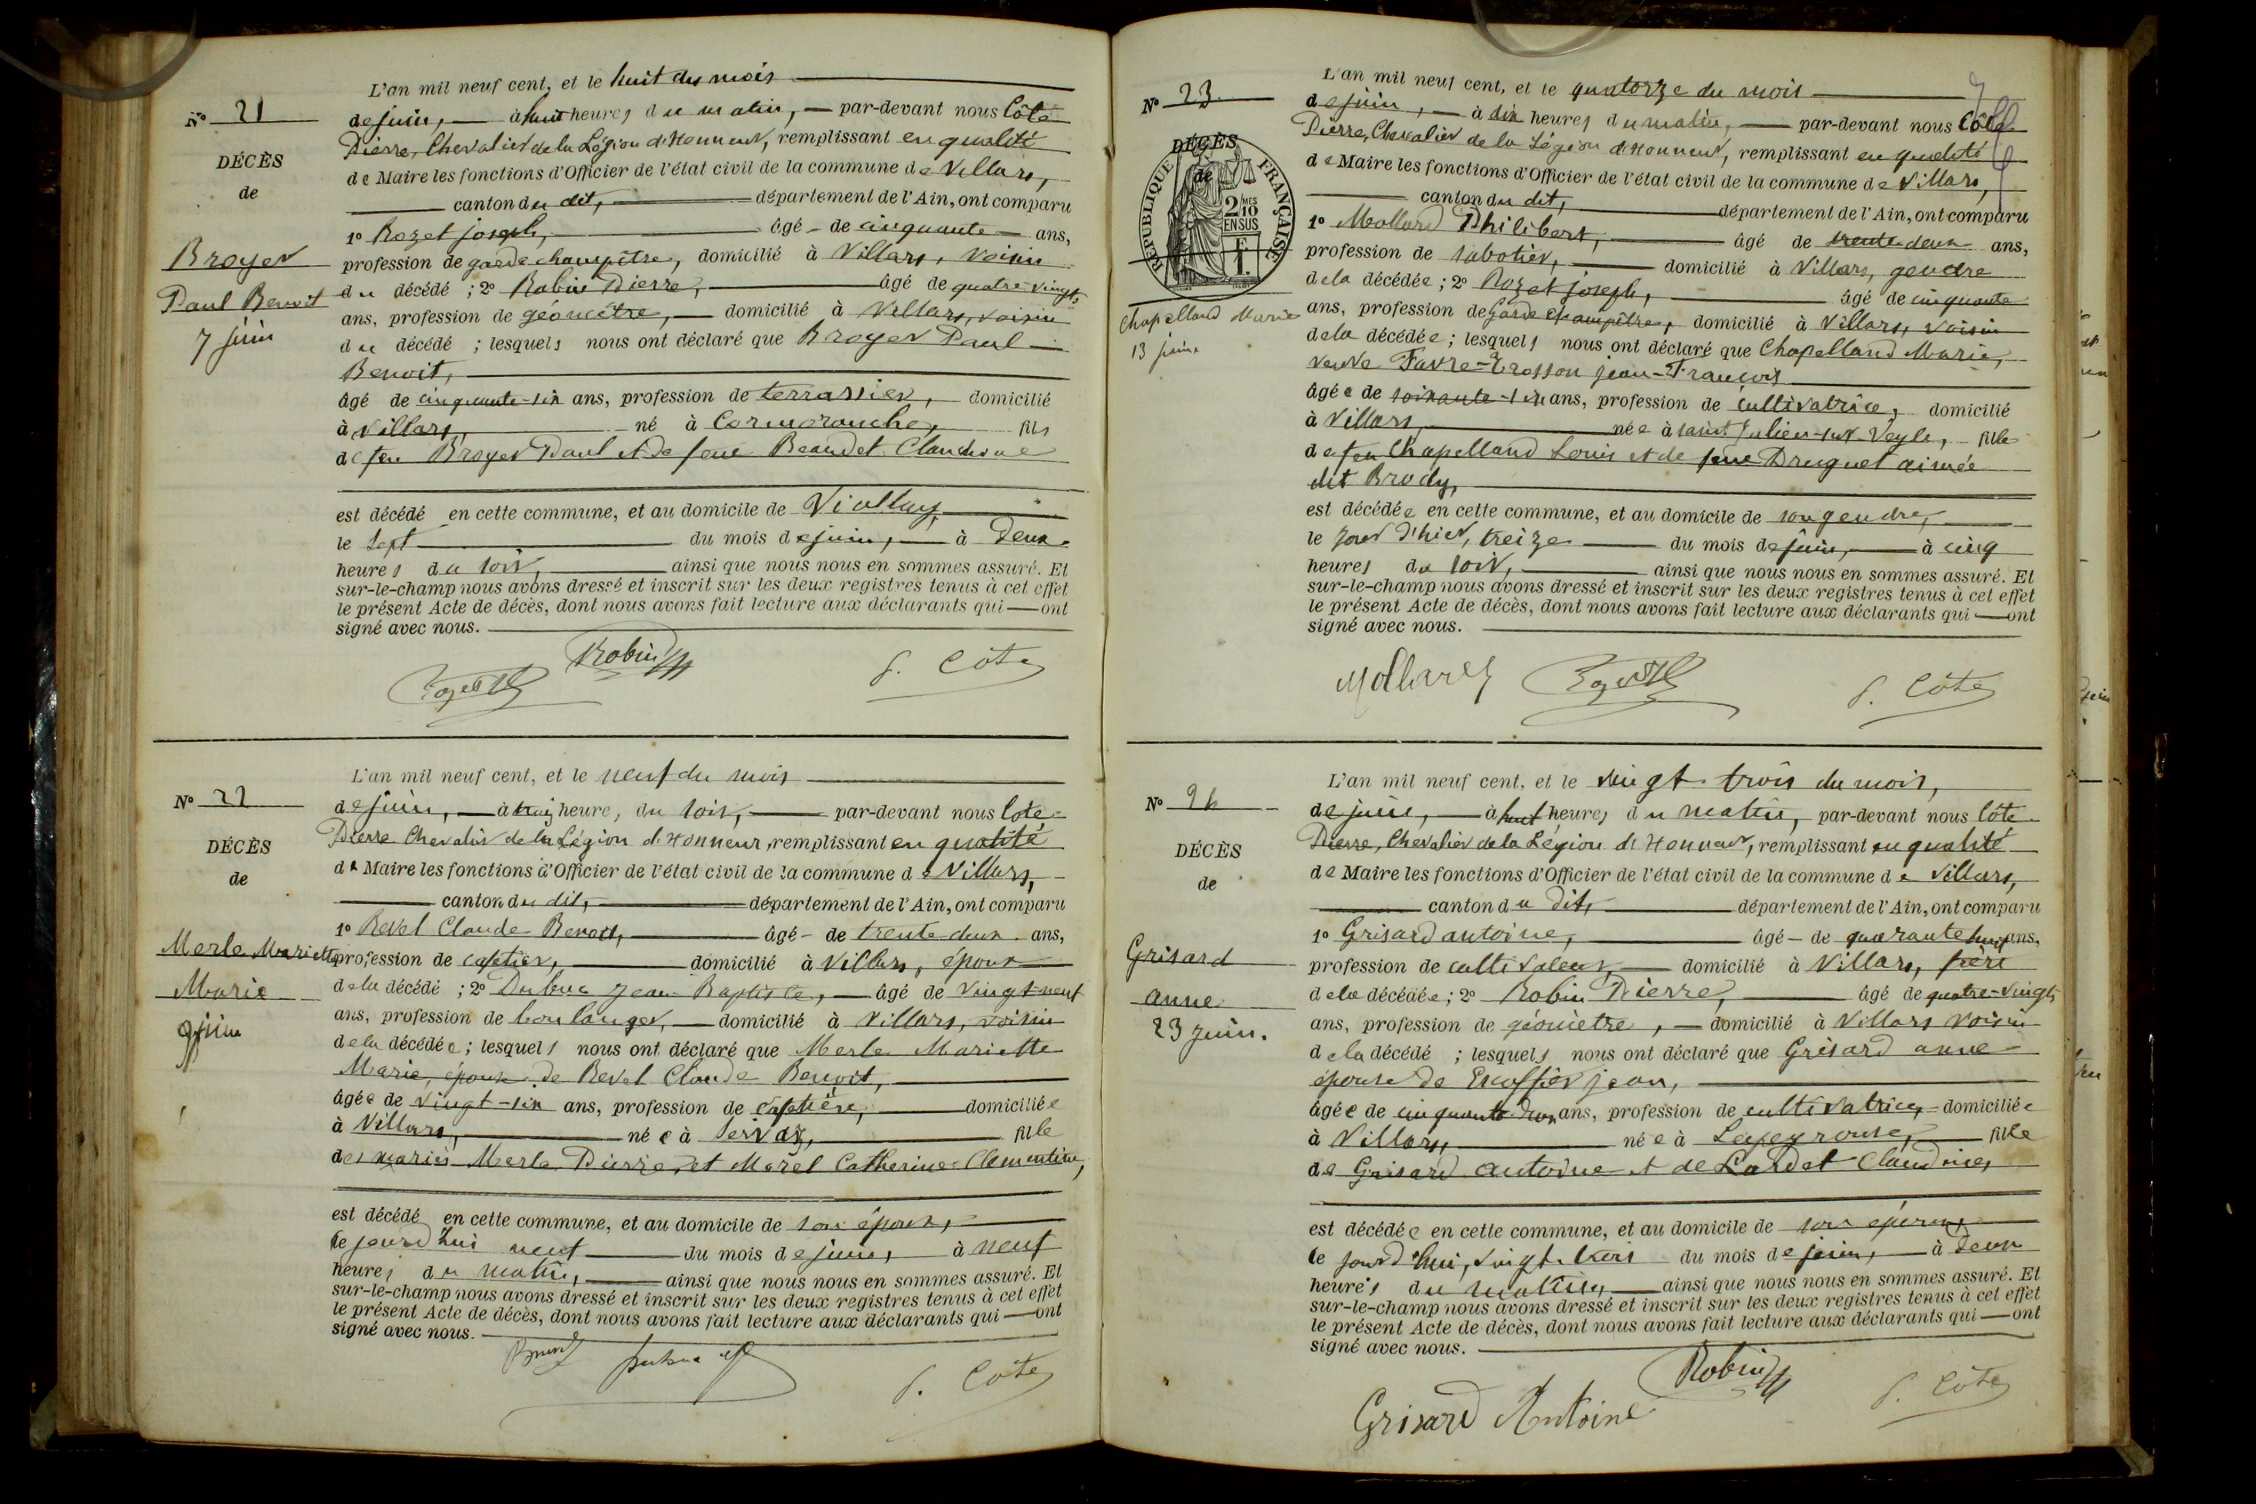 N° 21
DÉCÈS
de
Broyer
Paul Benoit
7 juin
L'an mil neuf cent, et le huit du mois
de juin, à huit heures du matin, par-devant nous Côte
Pierre, Chevalier de la Légion d'Honneur, remplissant en qualité
de Maire les fonctions d'Officier de l'état civil de la commune de Villars,
canton du dit, département de l'Ain, ont comparu
1° Rozet joseph, âgé de cinquante ans,
profession de garde champêtre, domicilié à Villars, voisin
du décédé ; 2° Robin Pierre, âgé de quatre-vingts
ans, profession de géomètre, domicilié à Villars, voisin
du décédé ; lesquels nous ont déclaré que Broyer Paul
Benoit,
âgé de cinquante-six ans, profession de terrassier, domicilié
à Villars, né à Cormoranche, fils
de feu Broyer Paul et de feue Beaudet Claudine
est décédé en cette commune, et au domicile de Viollay,
le sept du mois de juin, à Deux
heures du soir, ainsi que nous nous en sommes assuré. Et
sur-le-champ nous avons dressé et inscrit sur les deux registres tenus à cet effet
le présent Acte de décès, dont nous avons fait lecture aux déclarants qui ont
signé avec nous.
Robin
Rozet
P. Côte
N° 22
DÉCÈS
de
Merle Mariette
Marie
9 juin
L'an mil neuf cent, et le neuf du mois
de juin, à trois heures du soir, par-devant nous Côte
Pierre Chevalier de la Légion d'Honneur, remplissant en qualité
de Maire les fonctions d'Officier de l'état civil de la commune de Villars,
canton du dit, département de l'Ain, ont comparu
1° Revel Claude Benoit, âgé de trente deux ans,
profession de cafetier, domicilié à Villars, époux
de la décédé ; 2° Dubuc Jean Baptiste, âgé de vingt neuf
ans, profession de boulanger, domicilié à Villars, voisin
de la décédée ; lesquels nous ont déclaré que Merle Mariette
Marie, épouse de Revel Claude Benoit,
âgée de vingt-six ans, profession de cafetière, domiciliée
à Villars, née à Servas, fille
des mariés Merle Pierre, et Morel Catherine Clementine,
est décédé en cette commune, et au domicile de son époux,
le jourd'hui neuf du mois de juin, à neuf
heures du matin, ainsi que nous nous en sommes assuré. Et
sur-le-champ nous avons dressé et inscrit sur les deux registres tenus à cet effet
le présent Acte de décès, dont nous avons fait lecture aux déclarants qui ont
signé avec nous.
P. Côte
N° 23
DÉCÈS
de
RÉPUBLIQUE FRANÇAISE
2/10
EN SUS
Chapelland Marie
13 juin
L'an mil neuf cent, et le quatorze du mois
de juin, à dix heures du matin, par-devant nous Côte
Pierre, Chevalier de la Légion d'Honneur, remplissant en qualité
de Maire les fonctions d'Officier de l'état civil de la commune de Villars,
canton du dit, département de l'Ain, ont comparu
1° Mollard Philibert, âgé de trente deux ans,
profession de sabotier, domicilié à Villars, gendre
de la décédée ; 2° Rozet joseph, âgé de cinquante
ans, profession de Garde champêtre, domicilié à Villars, voisin
de la décédée ; lesquels nous ont déclaré que Chapelland Marie,
veuve Favre-Trosson jean-François
âgée de soixante-six ans, profession de cultivatrice, domicilié
à Villars, née à saint Julien-sur-Veyle, fille
de feu Chapelland Louis et de feue Druguet aimée
dit Brody,
est décédée en cette commune, et au domicile de son gendre,
le jour d'hier, treize du mois de juin, à cinq
heures du soir, ainsi que nous nous en sommes assuré. Et
sur-le-champ nous avons dressé et inscrit sur les deux registres tenus à cet effet
le présent Acte de décès, dont nous avons fait lecture aux déclarants qui ont
signé avec nous.
Mollard
Rozet
P. Côte
N° 24
DÉCÈS
de
Grisard
anne
23 juin.
L'an mil neuf cent, et le vingt trois du mois,
de juin, à huit heures du matin, par-devant nous Côte
Pierre, Chevalier de la Légion d'Honneur, remplissant en qualité
de Maire les fonctions d'Officier de l'état civil de la commune de Villars,
canton du dit, département de l'Ain, ont comparu
1° Grisard antoine, âgé de quarante huit ans,
profession de cultivateur, domicilié à Villars, frère
de la décédée ; 2° Robin Pierre, âgé de quatre-vingts
ans, profession de géomètre, domicilié à Villars voisin
de la décédé ; lesquels nous ont déclaré que Grisard anne
épouse de Escoffier jean,
âgée de cinquante deux ans, profession de cultivatrice, domiciliée
à Villars, née à Lapeyrouse, fille
de Grisard antoine et de Lardet Claudine,
est décédée en cette commune, et au domicile de son époux,
le jourd'hui, vingt-trois du mois de juin, à deux
heures du matin, ainsi que nous nous en sommes assuré. Et
sur-le-champ nous avons dressé et inscrit sur les deux registres tenus à cet effet
le présent Acte de décès, dont nous avons fait lecture aux déclarants qui ont
signé avec nous.
Robin
Grisard Antoine
P. Côte